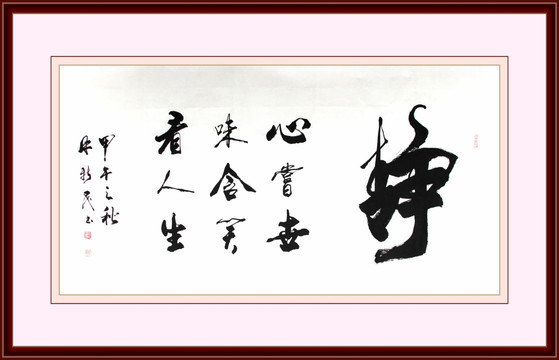 静
心嘗世
味含笑
看人生
甲午之秋
民书